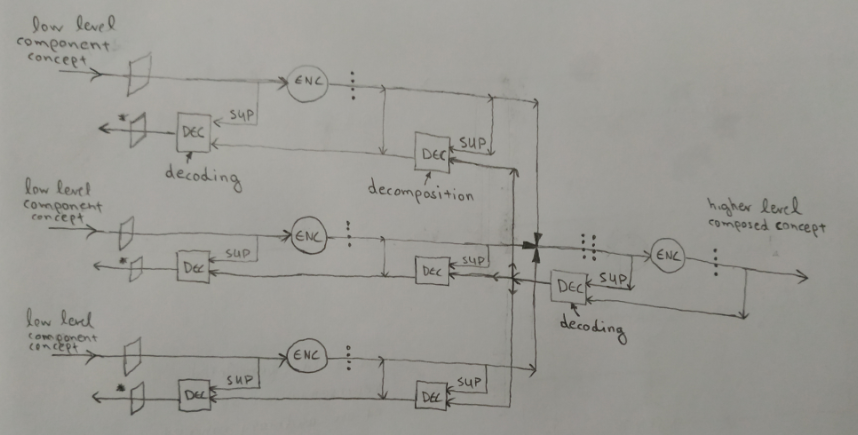 low level
component
concept
ENC
*
SUP
DEC
decoding
SUP
DEC
decomposition
low level
component
concept
ENC
*
SUP
DEC
SUP
DEC
higher level
composed concept
ENC
SUP
DEC
decoding
low level
component
concept
ENC
*
SUP
DEC
SUP
DEC